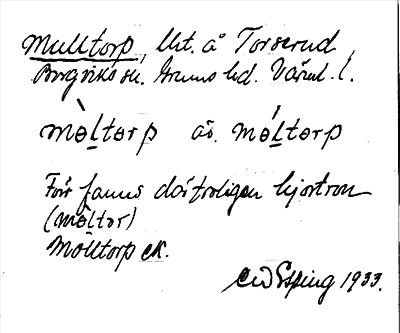 Mulltorp, lht. å Torserud,
Borgviks sn. Grums hd. Värml. l.
mòltorp äv. móltorp
Förr fanns där troligen hjortron
(mòltor)
Molltorp ek.
CW Esping 1933.